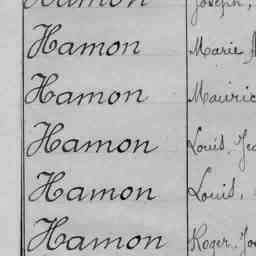 Hamon Joseph,
Hamon Marie
Hamon Maurice
Hamon Louis, Jea
Hamon Louis,
Hamon Roger, Jo